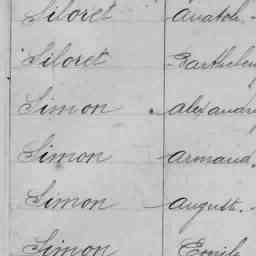 Siloret Anatole
Siloret Barthelemy
Simon Alexandre
Simon Armand
Simon August.
Simon Emile